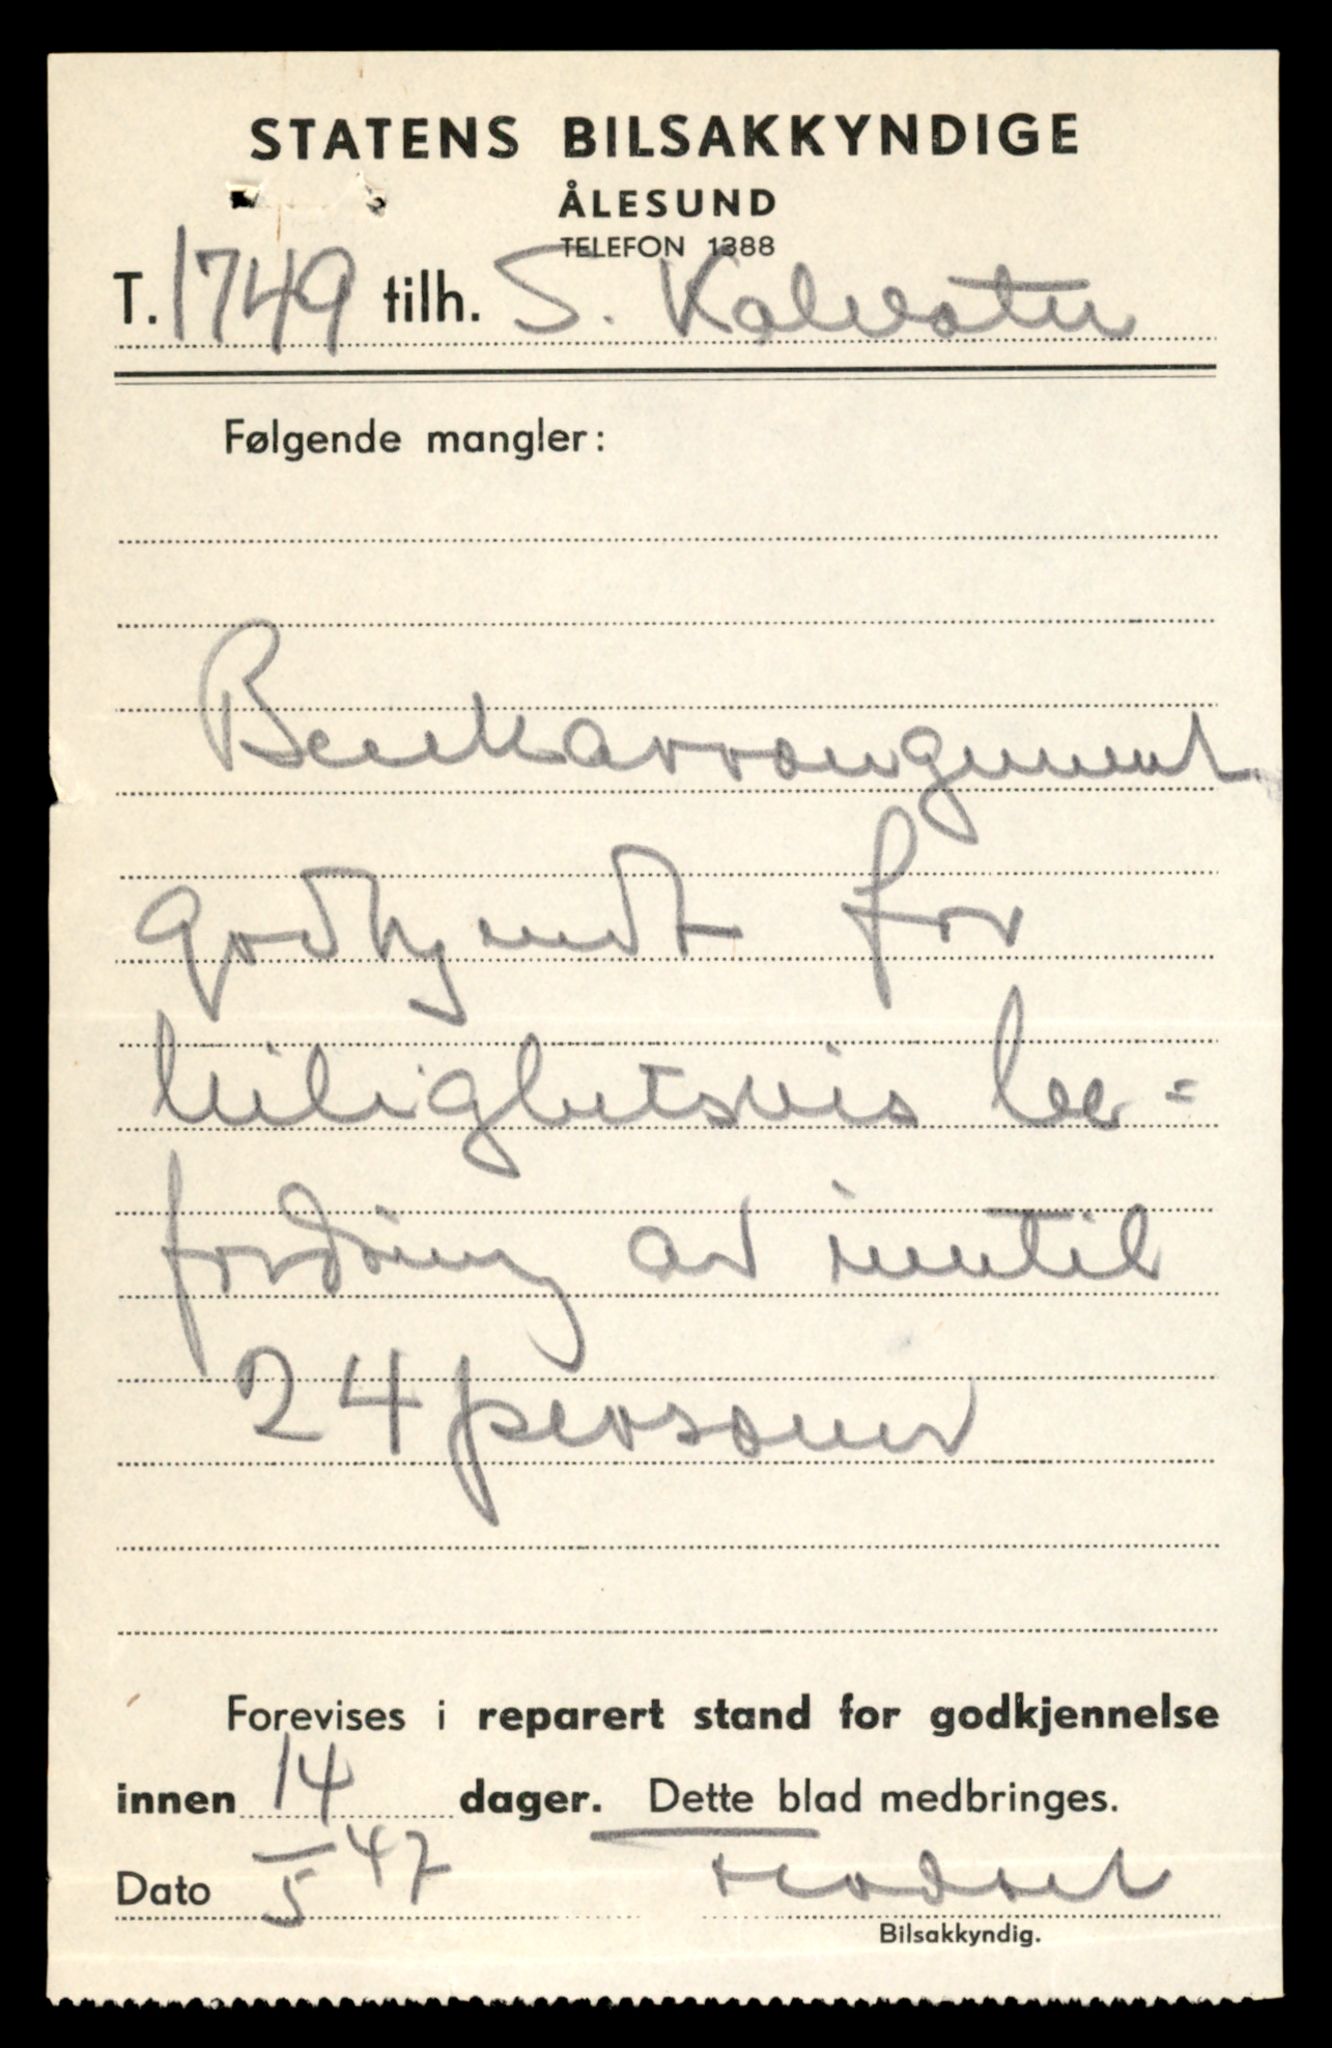 STATENS BILSAKKYNDIGE
ÅLESUND
TELEFON 1388
T. 1749 tilh. S. Kalvatn
Følgende mangler:
Benkarrangement
godkjendt for
leilighetsvis be=
fordring av inntil
24 personer
Forevises i reparert stand for godkjennelse
innen 14 dager. Dette blad medbringes.
Dato 14/5 47
Bilsakkyndig.